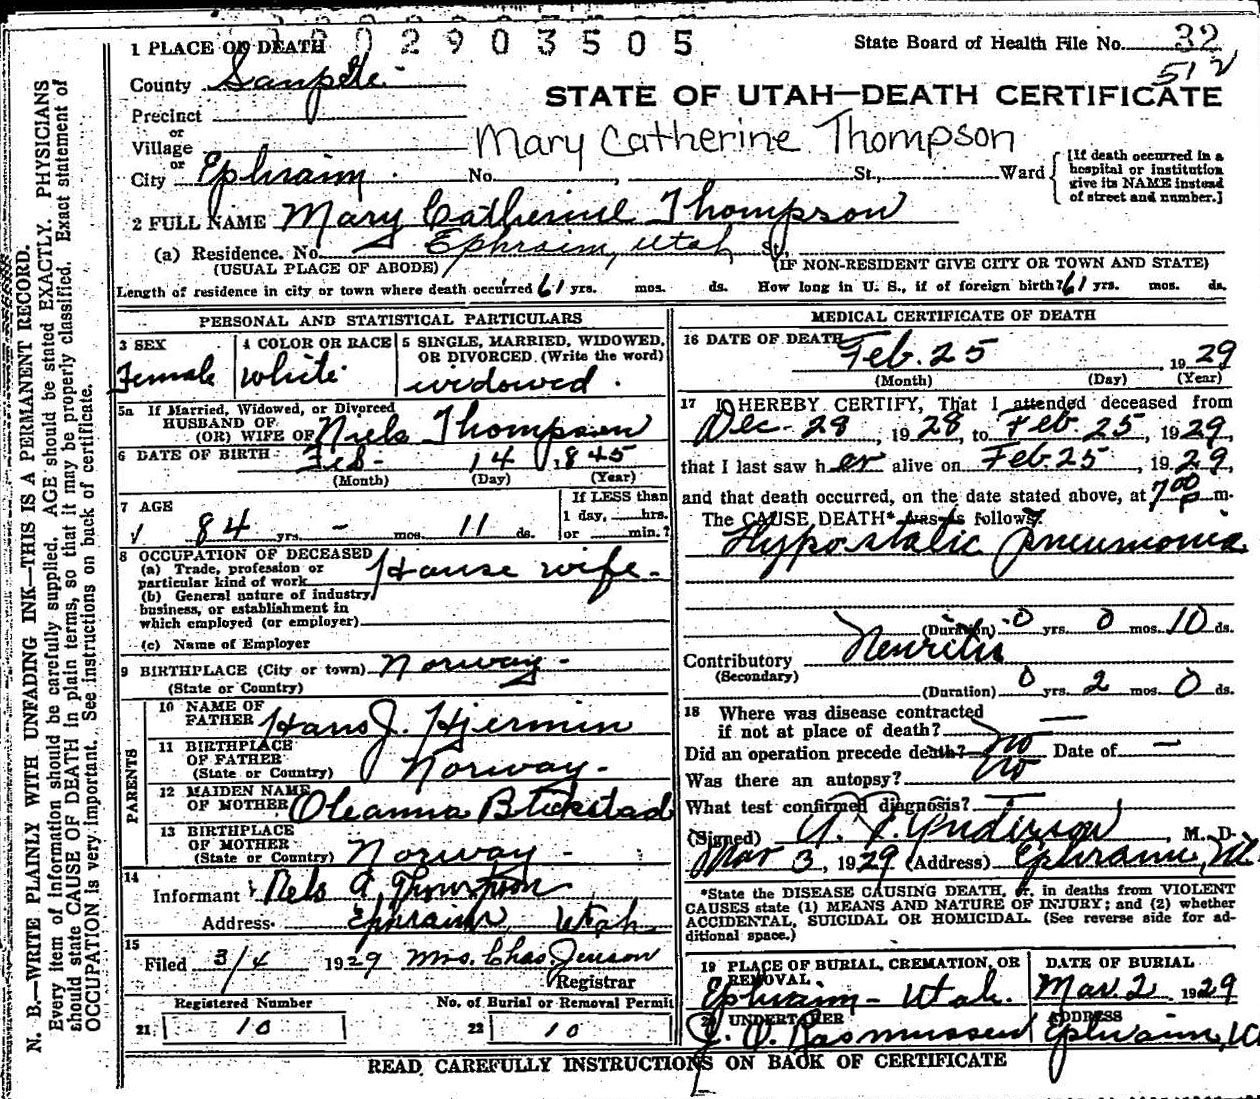 2902903505
State Board of Health File No. 32
512
1 PLACE OF DEATH
County Sanpete
STATE OF UTAH—DEATH CERTIFICATE
Precinct
or
Village
Mary Catherine Thompson
or
City Ephraim No. , St., Ward
[If death occurred in a hospital or institution give its NAME instead of street and number.]
2 FULL NAME Mary Catherine Thompson
(a) Residence. No. Ephraim, Utah St.,
(USUAL PLACE OF ABODE) (IF NON-RESIDENT GIVE CITY OR TOWN AND STATE)
Length of residence in city or town where death occurred 61 yrs. mos. ds. How long in U. S., if of foreign birth? 61 yrs. mos. ds.
PERSONAL AND STATISTICAL PARTICULARS
3 SEX Female
4 COLOR OR RACE white
5 SINGLE, MARRIED, WIDOWED, OR DIVORCED (Write the word) widowed.
5a If Married, Widowed, or Divorced
HUSBAND OF
(OR) WIFE OF Niels Thompson
6 DATE OF BIRTH Feb- 14 1845
(Month) (Day) (Year)
7 AGE
84 yrs. – mos. 11 ds.
If LESS than
1 day, hrs.
or min.?
8 OCCUPATION OF DECEASED
(a) Trade, profession or
particular kind of work House wife-
(b) General nature of industry,
business, or establishment in
which employed (or employer)
(c) Name of Employer
9 BIRTHPLACE (City or town) Norway-
(State or Country)
PARENTS
10 NAME OF FATHER Hans J. Hjermin
11 BIRTHPLACE OF FATHER
(State or Country) Norway-
12 MAIDEN NAME OF MOTHER Oleanna
13 BIRTHPLACE OF MOTHER
(State or Country) Norway -
14
Informant Nels A Thompson
Address Ephraim, Utah.
15
Filed 3/4 1929 Mrs. Chas. Jenson
Registrar
Registered Number No. of Burial or Removal Permit
21 10 22 10
MEDICAL CERTIFICATE OF DEATH
16 DATE OF DEATH Feb. 25, 1929
(Month) (Day) (Year)
17 I HEREBY CERTIFY, That I attended deceased from
Dec. 28, 1928, to Feb. 25, 1929,
that I last saw her alive on Feb. 25, 1929,
and that death occurred, on the date stated above, at 7 00 P m.
The CAUSE DEATH* was as follows:
Hypostatic pneumonia
(Duration) 0 yrs. 0 mos. 10 ds.
Contributory Neuritis
(Secondary)
(Duration) 0 yrs. 2 mos. 0 ds.
18 Where was disease contracted
if not at place of death? —
Did an operation precede death? no Date of —
Was there an autopsy? no
What test confirmed diagnosis? —
(Signed) A. P. Anderson M. D.
Mar 3, 1929 (Address) Ephraim, Ut
*State the DISEASE CAUSING DEATH, or, in deaths from VIOLENT
CAUSES state (1) MEANS AND NATURE OF INJURY; and (2) whether
ACCIDENTAL, SUICIDAL OR HOMICIDAL. (See reverse side for ad-
ditional space.)
19 PLACE OF BURIAL, CREMATION, OR REMOVAL DATE OF BURIAL
Ephraim - Utah. Mar. 2 1929
20 UNDERTAKER ADDRESS
Rasmussen Ephraim, Ut
READ CAREFULLY INSTRUCTIONS ON BACK OF CERTIFICATE
N. B.—WRITE PLAINLY WITH UNFADING INK—THIS IS A PERMANENT RECORD.
Every item of information should be carefully supplied. AGE should be stated EXACTLY. PHYSICIANS
should state CAUSE OF DEATH in plain terms, so that it may be properly classified. Exact statement of
OCCUPATION is very important. See instructions on back of certificate.